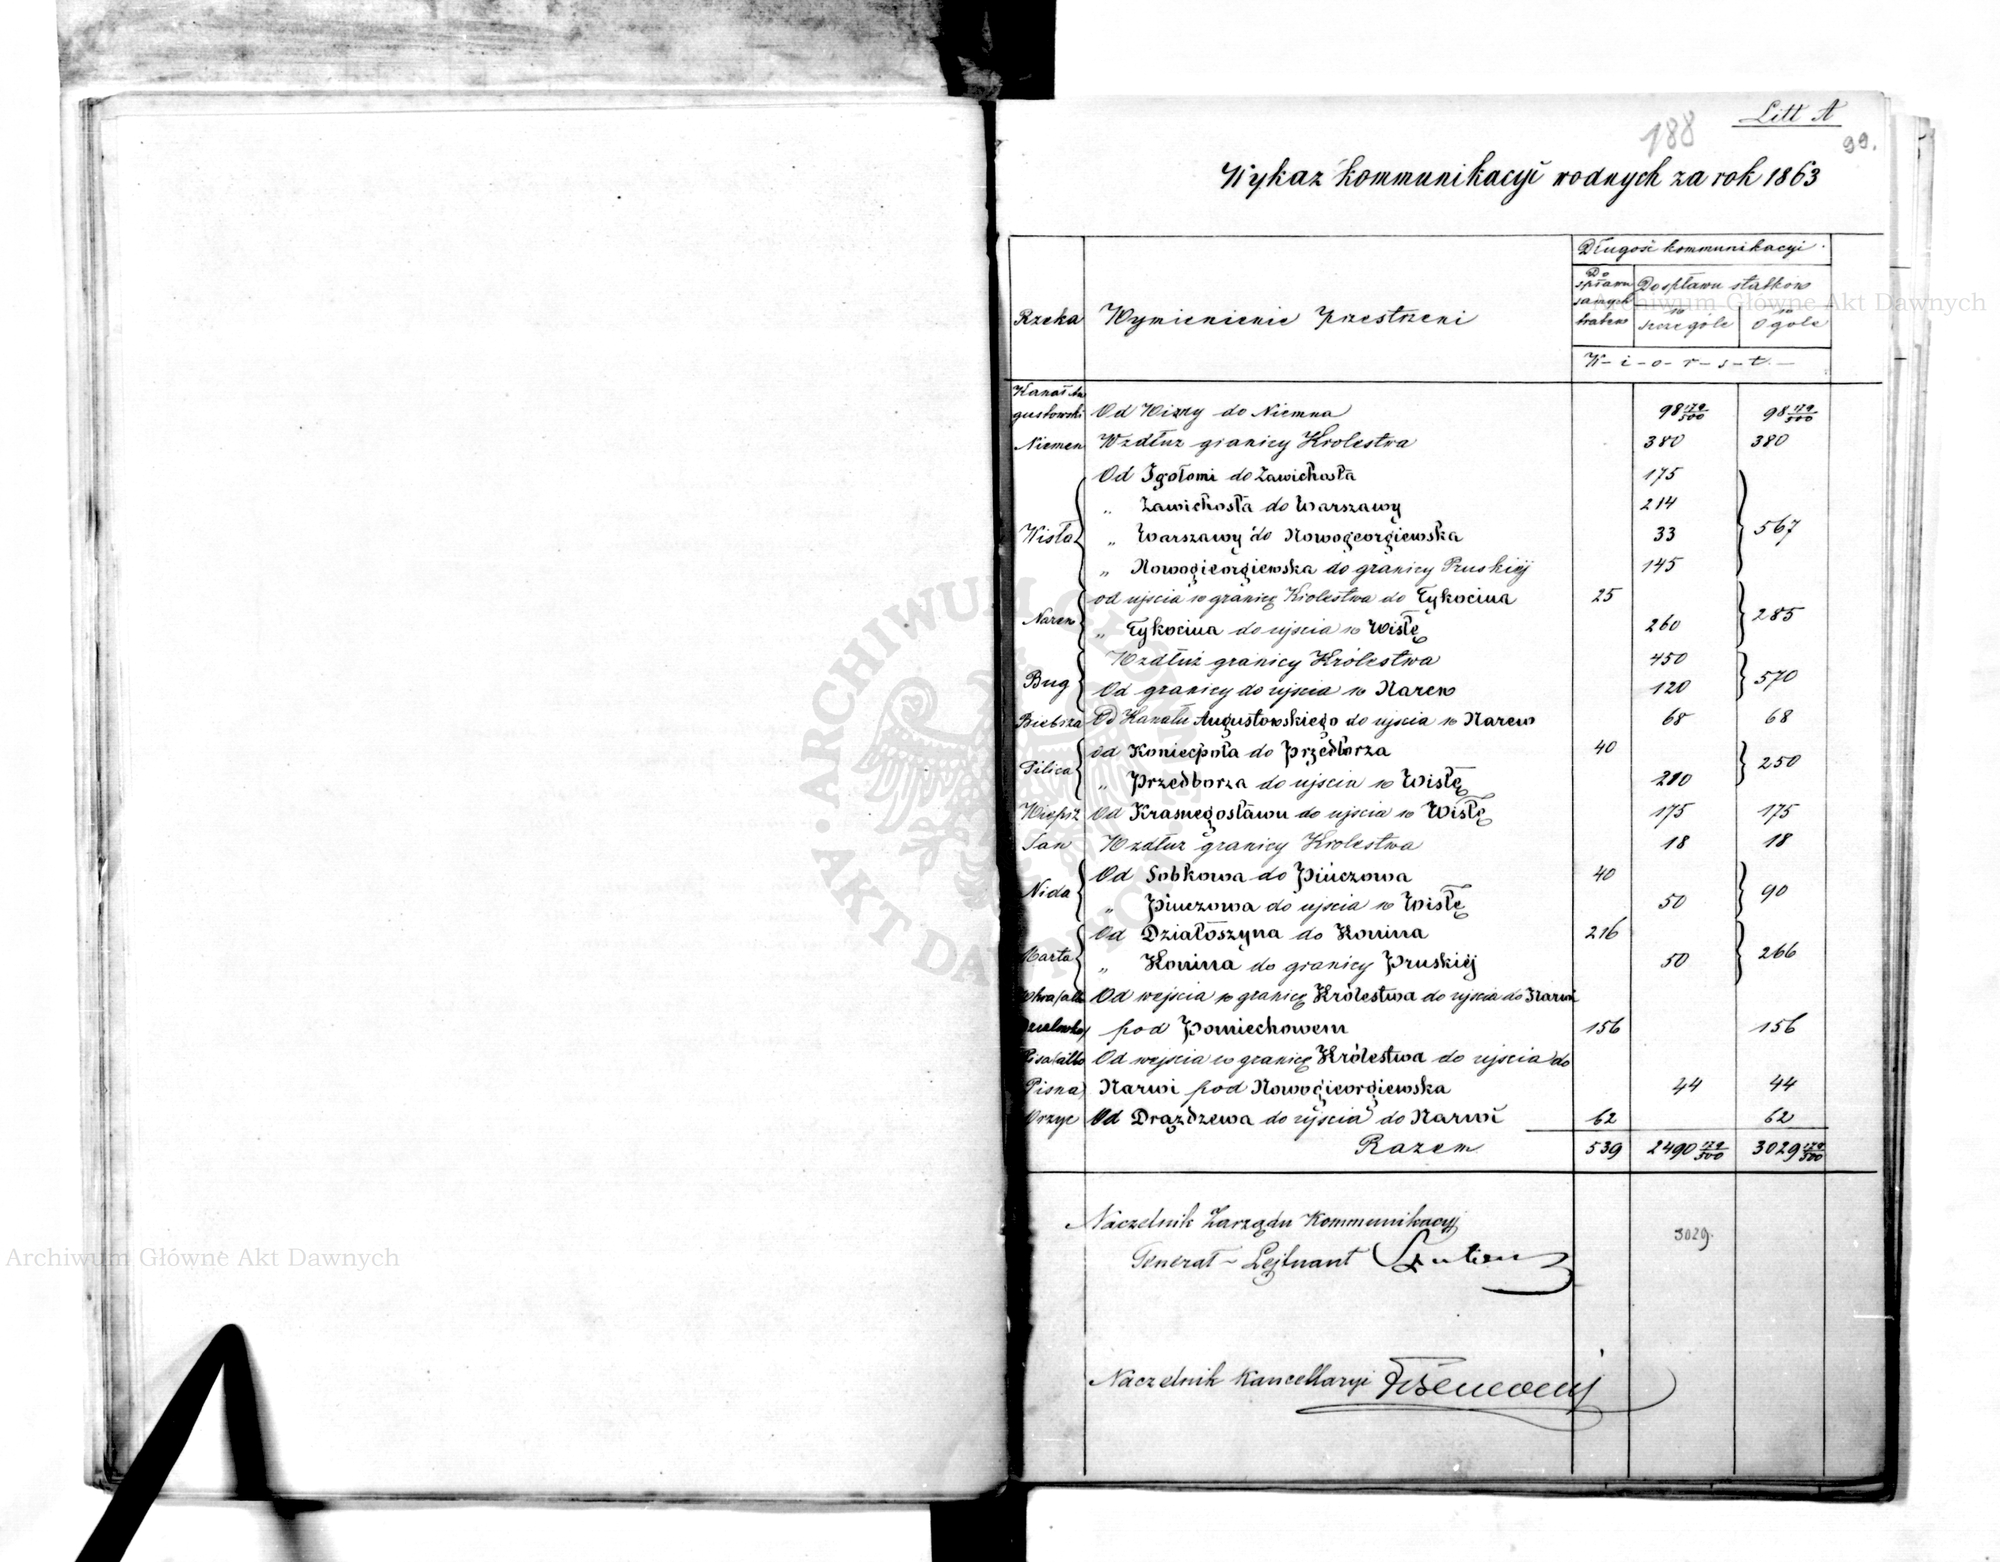 Litt A
188
99.
Wykaz kommunikacyi wodnych za rok 1863
Długość kommunikacyi.
Rzeka Wymienienie przestrzeni Do spławu samych tratew Do spławu statków
w szczególe w Ogóle
W-i-o-r-s-t.-
Kanał Au
gustowski Od Wizny do Niemna 98 179/500 98 179/500
Niemen Wzdłuż granicy Krolestwa 380 380
Od Igołomi do Zawichosta 175
„ Zawichosta do Warszawy 214
Wisła „ Warszawy do Nowogeorgiewska 33 567
„ Nowogieorgiewska do granicy Pruskiéj 145
od ujscia w granicę Krolestwa do Tykocina 25
Narew „ Tykocina do ujscia w Wisłę 260 285
Wzdłuż granicy Królestwa 450
Bug Od granicy do ujscia w Narew 120 570
Biebrza Od Kanału Augustowskiego do ujscia w Narew 68 68
od Koniecpola do Przedborza 40
Pilica „ Przedborza do ujscia w Wisłę 210 250
Wieprz Od Krasnegostawu do ujscia w Wisłę 175 175
San Wzdłuż granicy Krolestwa 18 18
Od Sobkowa do Pinczowa 40
Nida „ Pinczowa do ujscia w Wisłę 50 90
Od Działoszyna do Konina 216
Warta „ Konina do granicy Pruskiéj 50 266
Wkra/albo Od wejscia w granicę Królestwa do ujscia do Narwi
pod Pomiechowem 156 156
Pisa/albo Od wejscia w granicę Królestwa do ujscia do
Pisna/ Narwi pod Nowogieorgiewska 44 44
Orzyc Od Drążdzewa do ujscia do Narwi 62 62
Razem 539 2490 179/500 3029 179/500
Naczelnik Zarządu Kommunikacyj
3029.
Generał-Lejtnant
Naczelnik Kancellaryi
Archiwum Główne Akt Dawnych
Archiwum Główne Akt Dawnych
ARCHIWUM GŁÓWNE AKT DAWNYCH